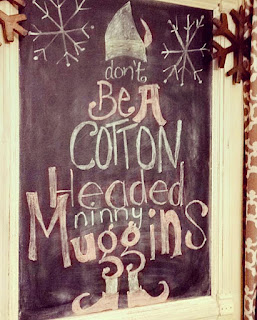 don't
BE A
COTTON
Headed
ninny
Muggins